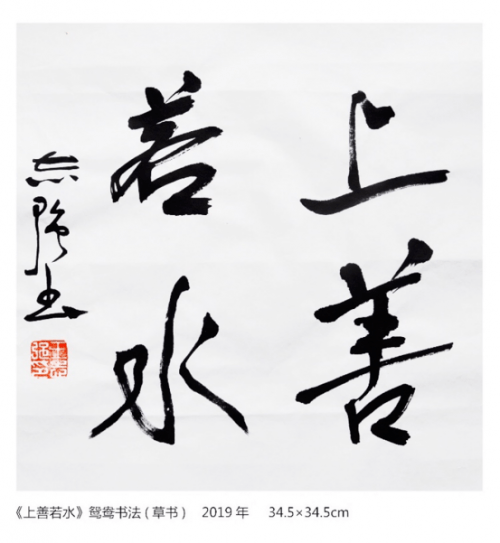 上善
若水
《上善若水》鸳鸯书法(草书) 2019年 34.5×34.5cm